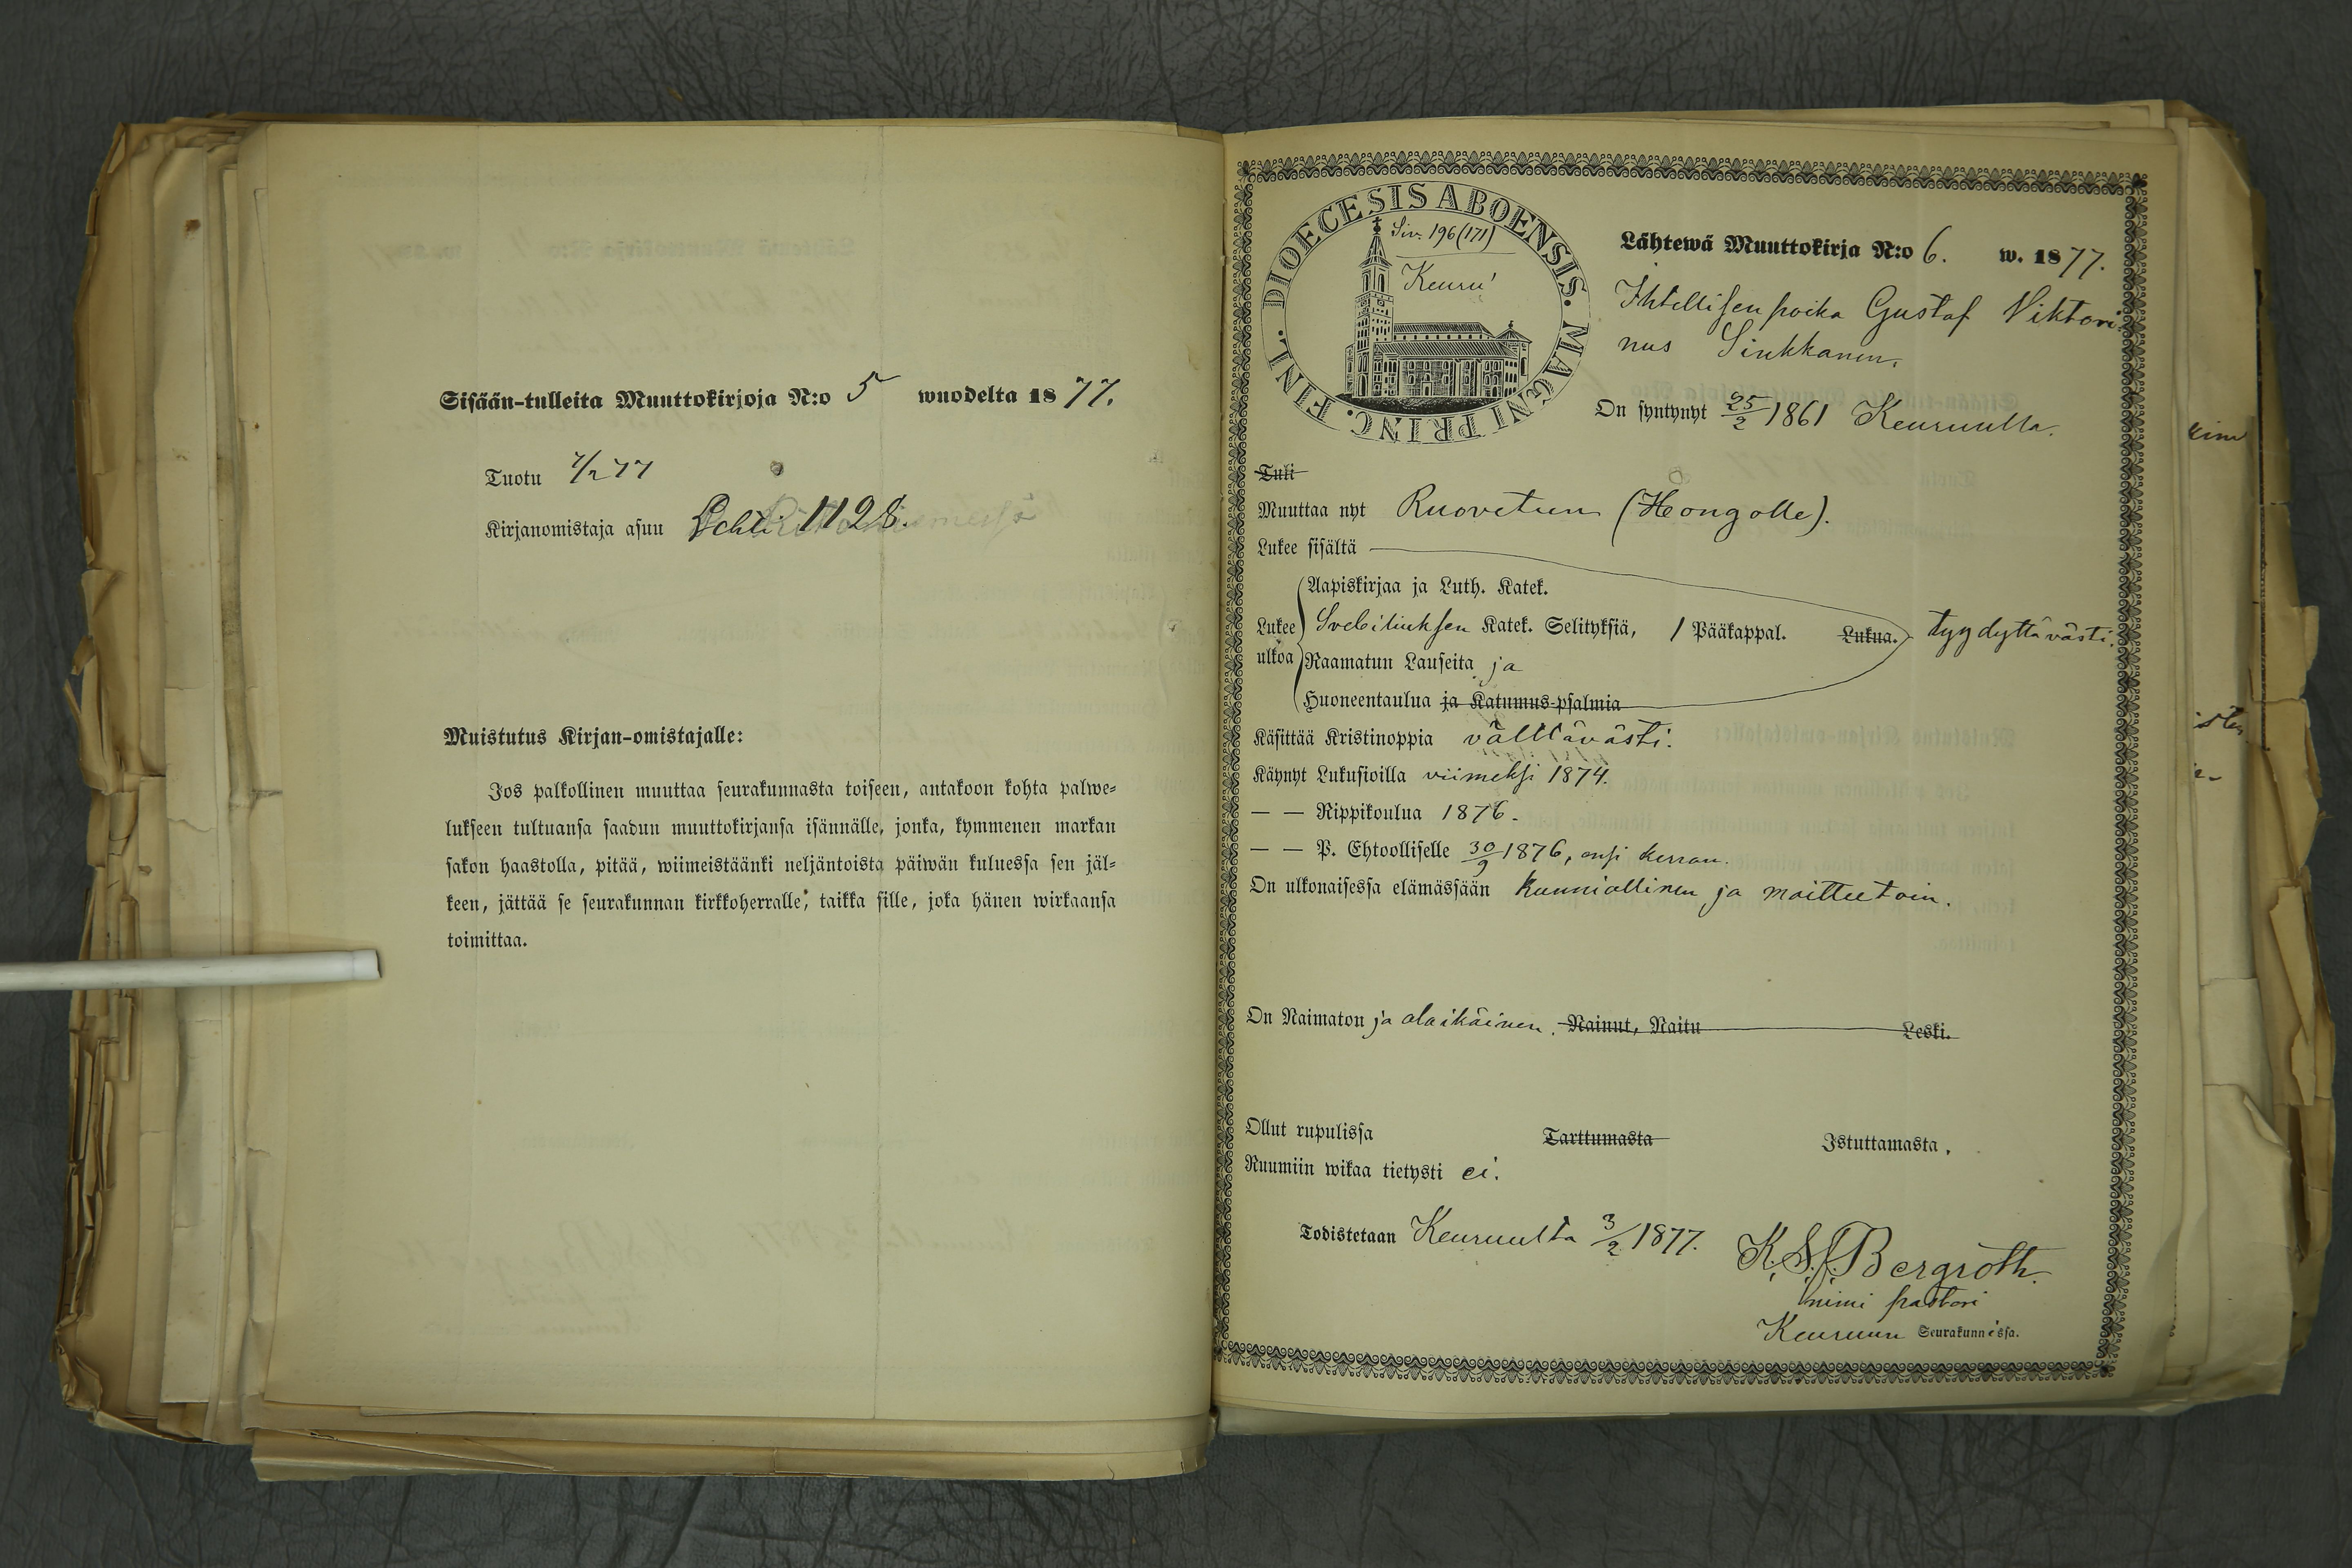 Sisään-tulleita Muuttokirjoja N:o 5 wuodelta 1877.
Tuotu 7/2 77
Kirjanomistaja asuu Lehti 1128.
Muistutus Kirjan-omistajalle:
Jos palkollinen muuttaa seurakunnasta toiseen, antakoon kohta palwe-
lukseen tultuansa saadun muuttokirjansa isännälle, jonka, kymmenen markan
sakon haastolla, pitää, wiimeistäänki neljäntoista päiwän kuluessa sen jäl-
keen, jättää se seurakunnan kirkkoherralle, taikka sille, joka hänen wirkaansa
toimittaa.
DIOECESIS ABOENSIS. MAGNI PRINC. FINL.
Siv. 196 (171)
Keuru
Lähtewä Muuttokirja N:o 6. w. 1877.
Ihtellisen poika Gustaf Viktori-
nus Sinkkanen.
On syntynyt 25/2 1861 Keuruulla.
Tuli
Muuttaa nyt Ruovetun (Hongolle).
Lukee sisältä
Aapiskirjaa ja Luth. Katek.
Lukee ulkoa Svebiliuksen Katek. Selityksiä, 1 Pääkappal. Lukua. tyydyttävästi.
Raamatun Lauseita ja
Huoneentaulua ja Katumus-psalmia
Käsittää Kristinoppia välttävästi.
Käynyt Lukusioilla viimeksi 1874.
— — Rippikoulua 1876.
— — P. Ehtoolliselle 30/9 1876, ensi kerran.
On ulkonaisessa elämässään kunniallinen ja moitteetoin.
On Naimaton ja alaikäinen. Nainut, Naitu Leski.
Ollut rupulissa Tarttumasta Istuttamasta.
Ruumiin wikaa tietysti ei.
Todistetaan Keuruulta 3/2 1877.
K. S. J. Bergroth.
nimi pastori
Keuruun Seurakunnissa.